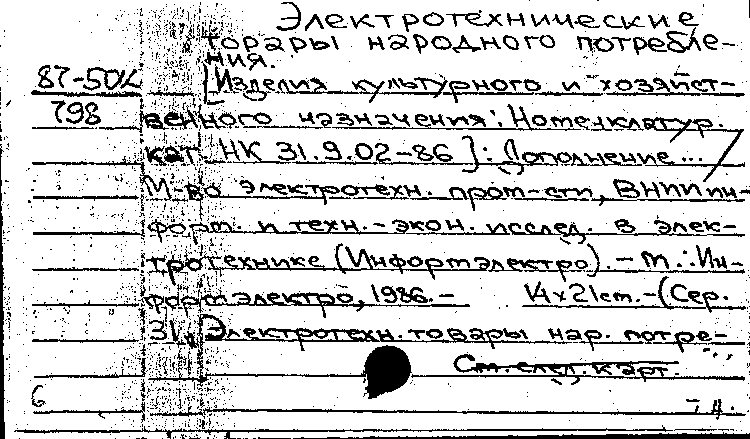 Электротехнические
товары народного потребле-
ния.
87-50К [Изделия культурного и хозяйст-
798 венного назначения: Номенклатур.
кат. НК 31.9.02-86]: Дополнение... /
М-во электротехн. пром-сти, ВНИИ ин-
форм. и техн.-экон. исслед. в элек-
тротехнике (Информэлектро). - М.: Ин-
формэлектро, 1986. - 14х21см. - (Сер.
31, Электротехн. товары нар. потре-
См. след. карт.
6